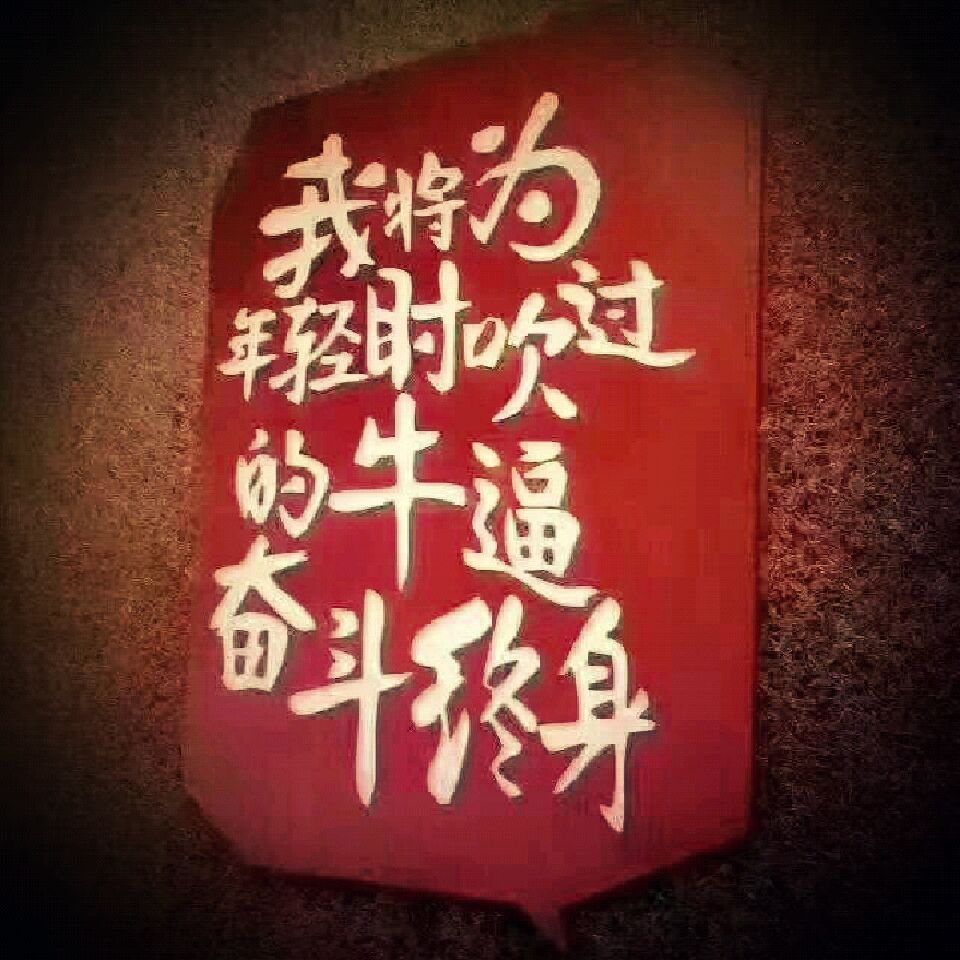 我将为
年轻时吹过
的牛逼
奋斗终身